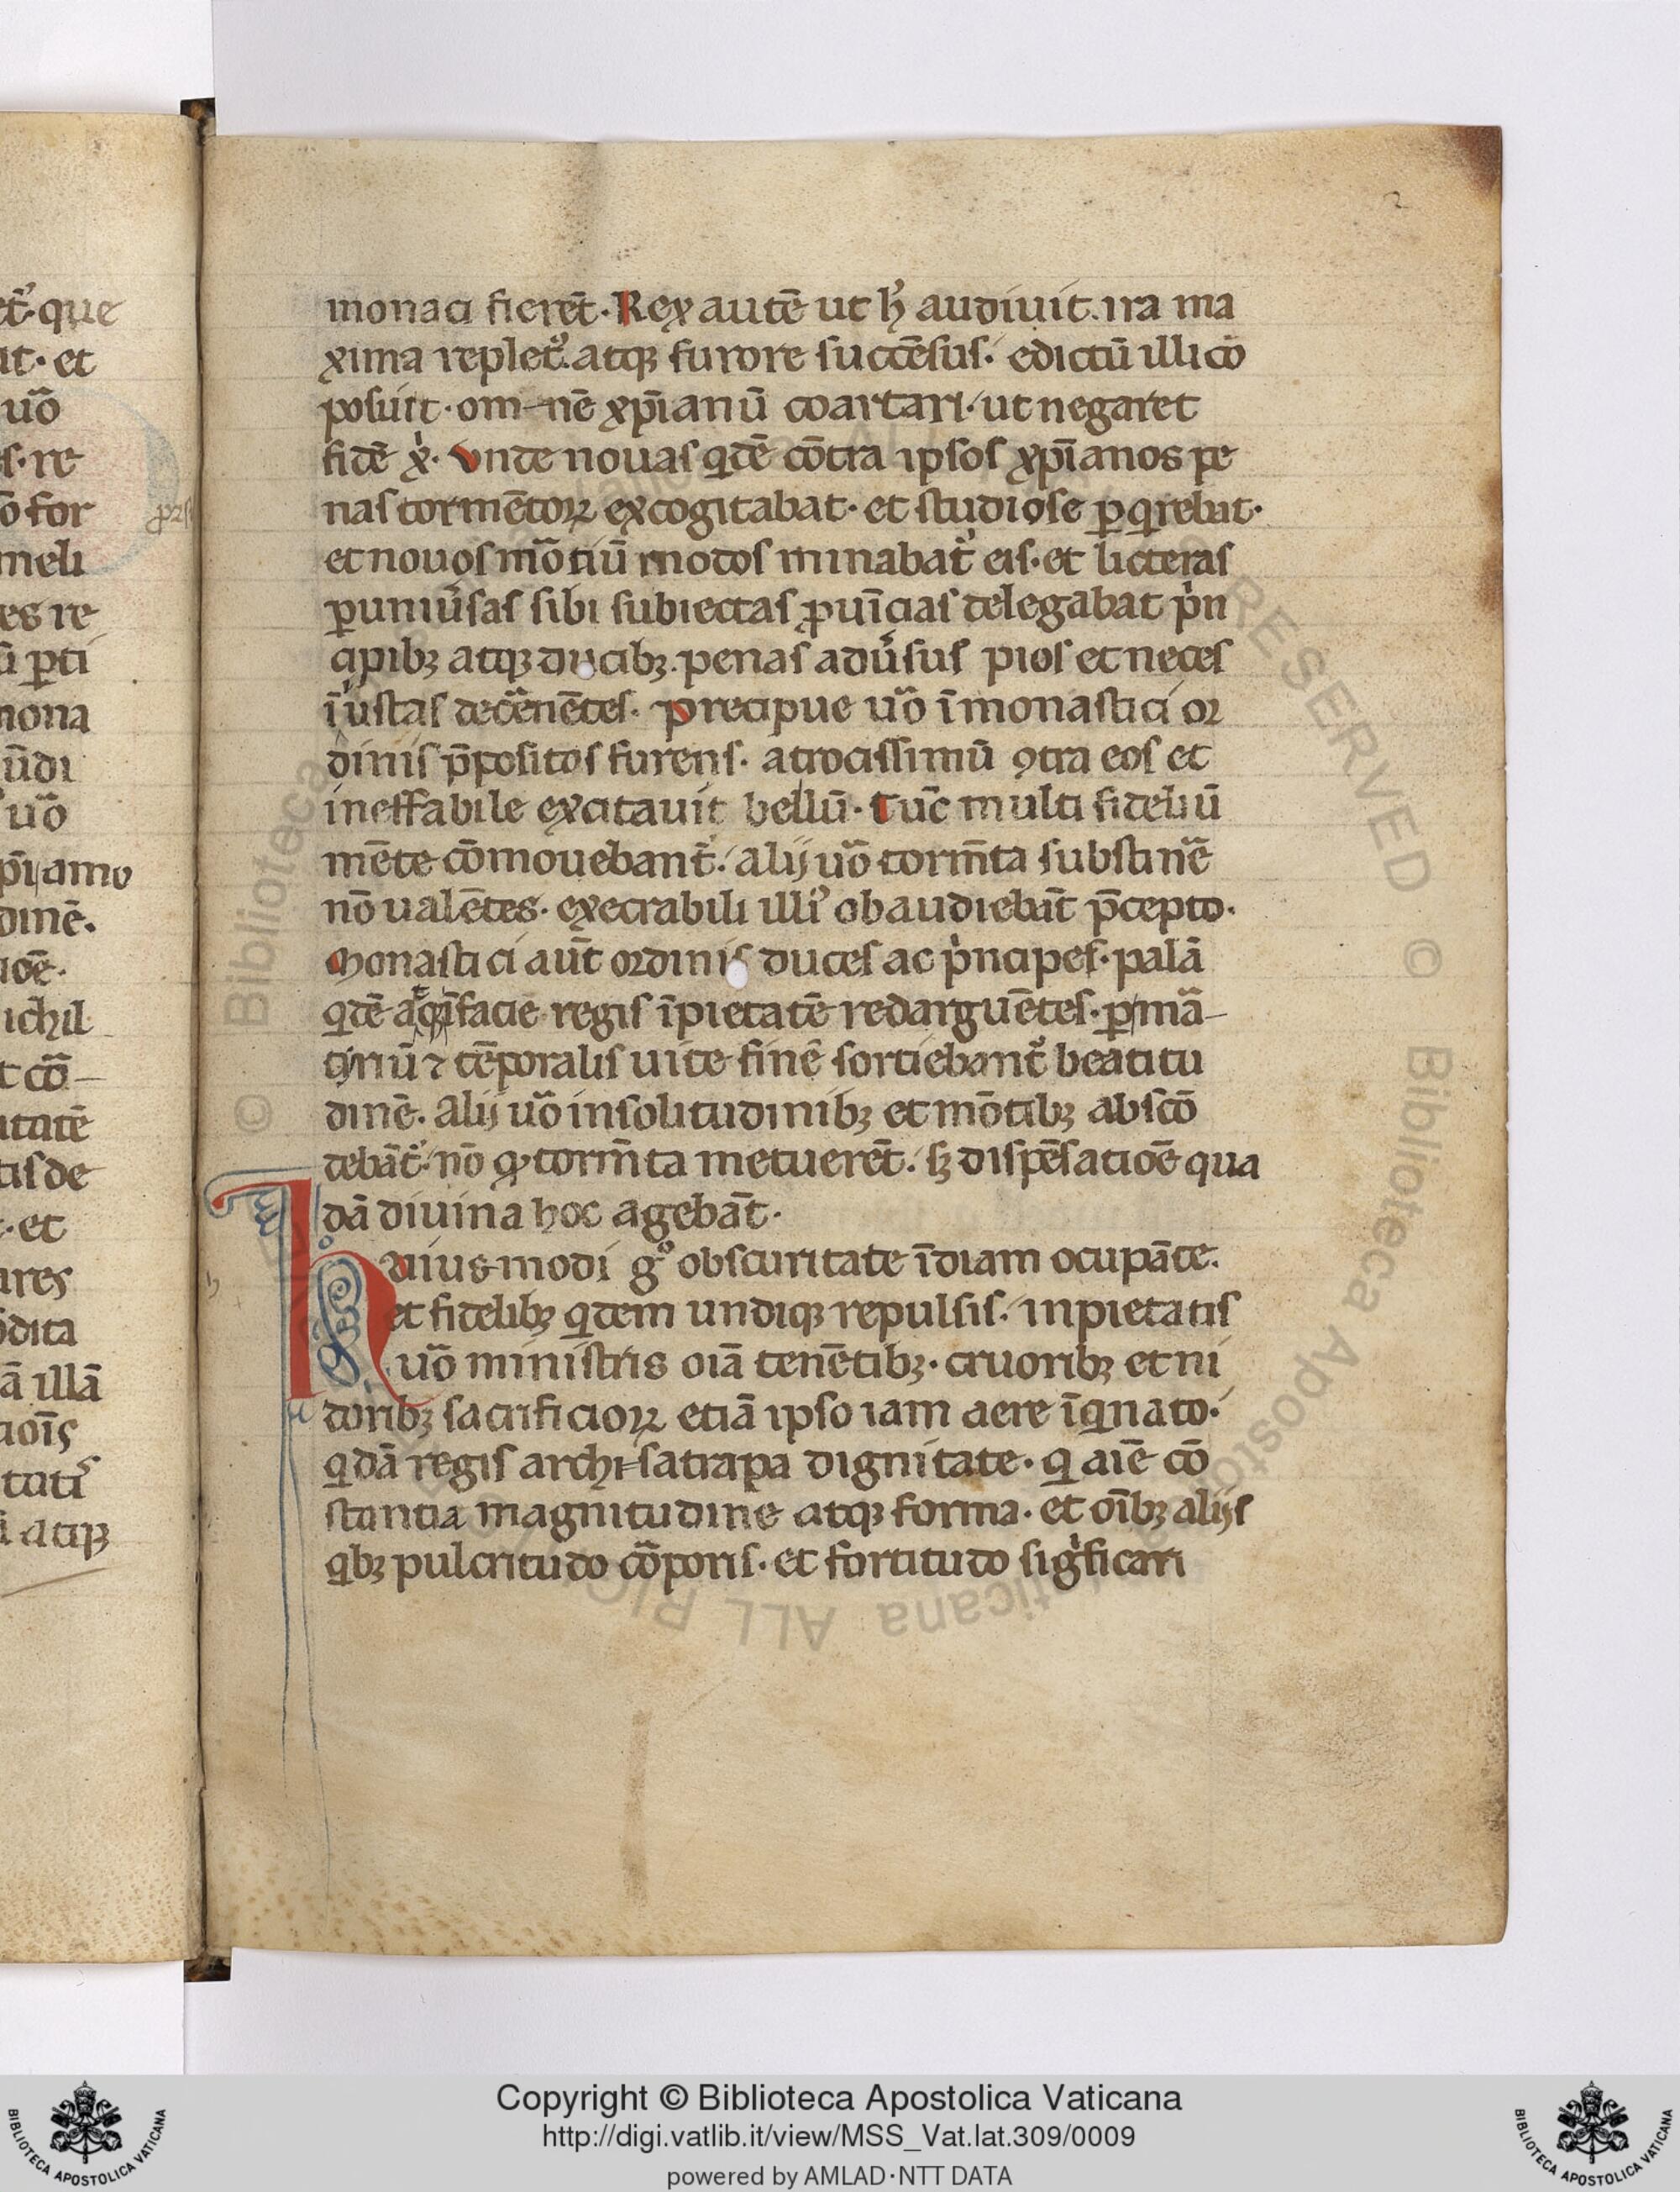 monaci fierēt. Rex autē ut h̓ audiuit. ira ma
xima repletꝰ. atqꝫ furore succēsus. edictū illi cō
posuit. om-nē xp̄ianū coartari. ut negaret
fidē x̓. Vnde nouas qͥdē cōtra ipsos xp̄ianos pe
nas tormētoꝝ excogitabat. et studiose ꝑqͥrebat.
et nouos mōtiū modos minabat᷑ eis. et licteras
ꝑuniu̓sas sibi subiectas ꝓuīcias delegabat pͥn
cipibꝫ atqꝫ ducibꝫ. penas adu̓sus pios et neces
īiustas dec̓enētes. Precipue uō ī monastici or
dinis p̄positos furens. atrocissimū ꝯtra eos et
ineffabile excitauit bellū. Tūc multi fideliū
mēte cōmouebant᷑. alij uō torm̄ta substinē
nō ualētes. execrabili illiꝰ obaudiebāt p̄cepto.
Monastici aūt ordinis duces ac pͥncipes. palā
qͥdē facie regis īpietatē redarguētes. ꝑ mā-
tiriū ⁊ tēporalis uite finē sortiebant᷑ beatitu
dinē. alij uō in solitudinibꝫ et mōtibꝫ abscō
debāt᷑. nō ꝙ torm̄ta metuerēt. sꝫ dispēsatiōe qua
dā diuina hoc agebāt.
Huius-modi gͦ obscuritate īdiam ocupāte.
et fidelibꝫ qͥdem undiqꝫ repulsis. inpietatis
uō ministris oīa tenētibꝫ. cruoribꝫ et ni
doribꝫ sacrificioꝝ etiā ipso iam aere īqͥnato.
qͥdā regis archi-satrapa dignitate. qͥ aīe cō
stantia magnitudine atqꝫ forma. et oībꝫ alijs
qͥbꝫ pulcritudo cōporis. et fortitudo sigͥficari
2
Copyright © Biblioteca Apostolica Vaticana
http://digi.vatlib.it/view/MSS_Vat.lat.309/0009
powered by AMLAD·NTT DATA